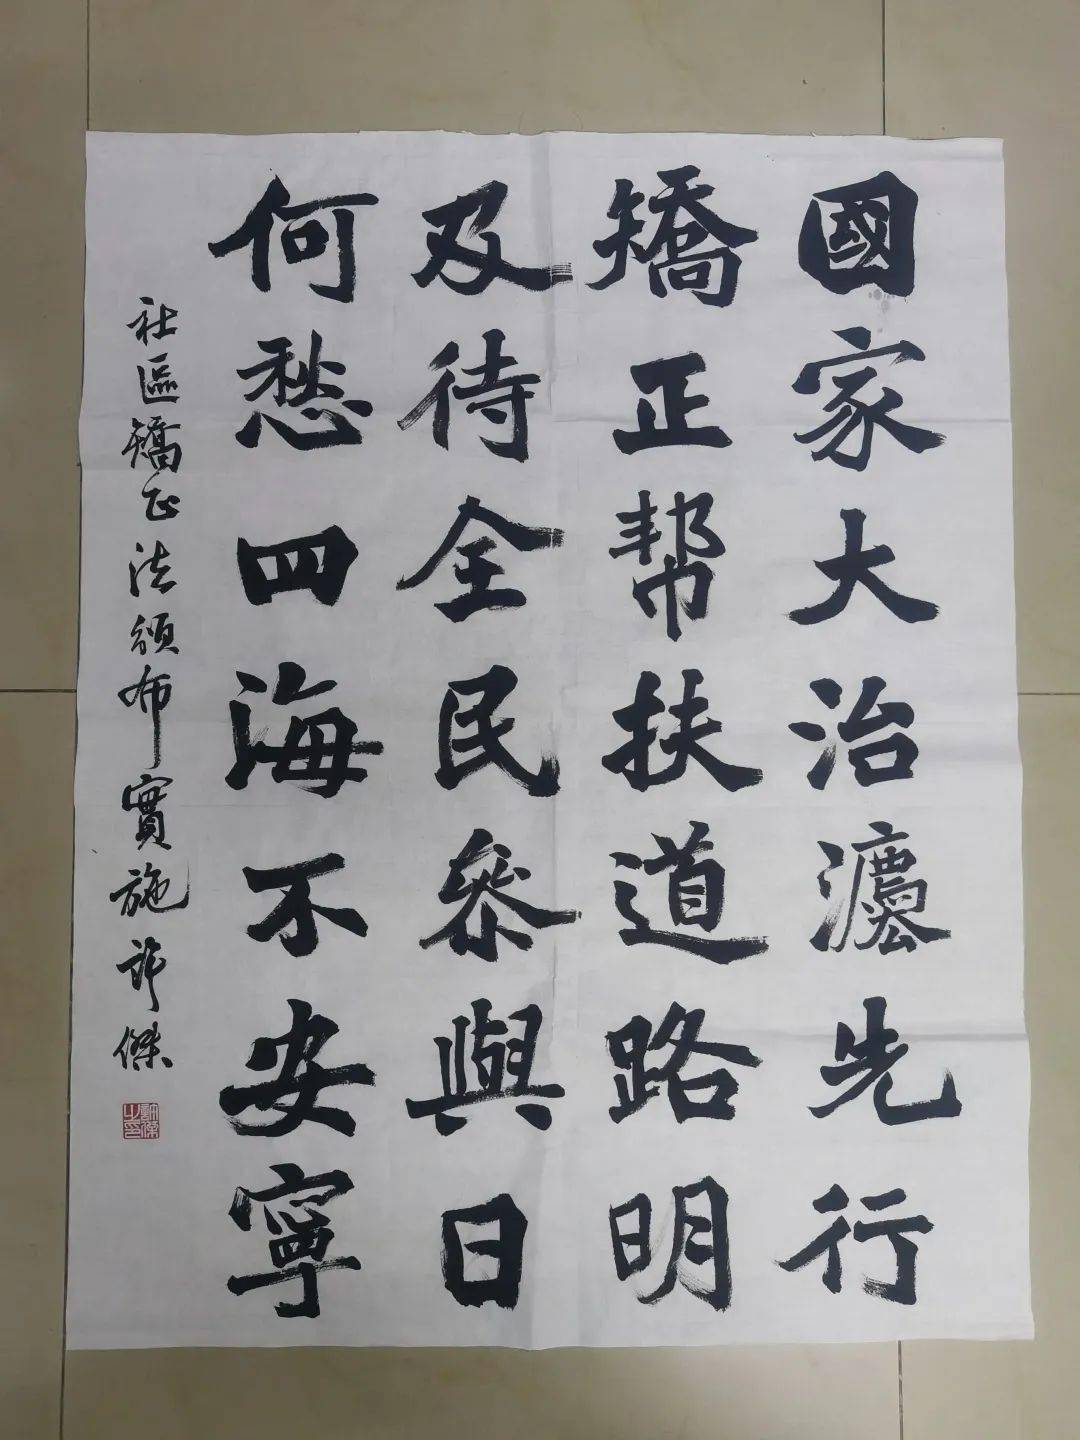 國家大治灋先行
矯正幫扶道路明
及待全民叅與日
何愁四海不安寧
社區矯正法頒布實施許傑
許傑之印